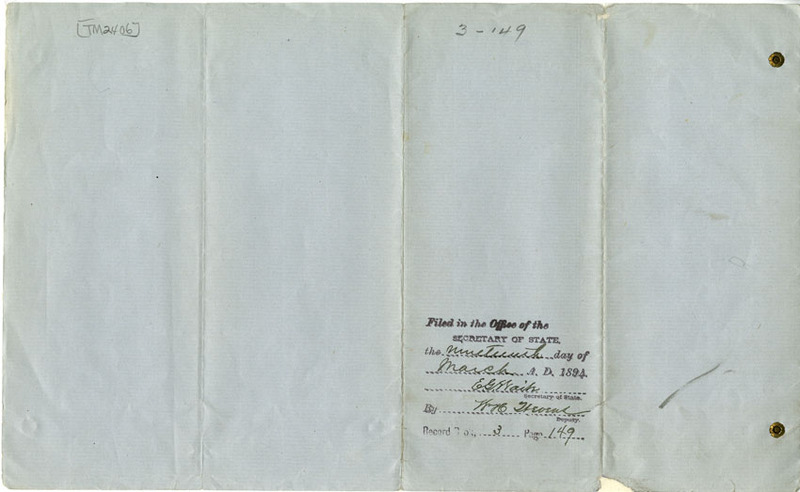 [TM2406]
3-149
Filed in the Office of the
SECRETARY OF STATE,
the nineteenth day of
March A. D. 1894
E G Waite
Secretary of State.
By
Deputy.
Record Book 3 Page 149